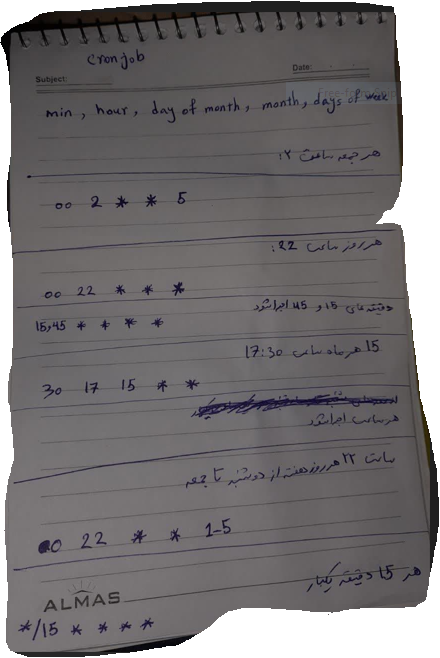 cronjob
Subject:
Date:
min, hour, day of month, month, days of week
هر جمعه ساعت ۲:
00 2 * * 5
هر روز ساعت 22:
00 22 * * *
دقیقه های 15 و 45 اجرا شود
15,45 * * * *
15 هر ماه ساعت 17:30
30 17 15 * *
هر ساعت اجرا شود
ساعت ۲۲ هر روز هفته از دوشنبه تا جمعه
00 22 * * 1-5
هر 15 دقیقه یکبار
ALMAS
*/15 * * * *